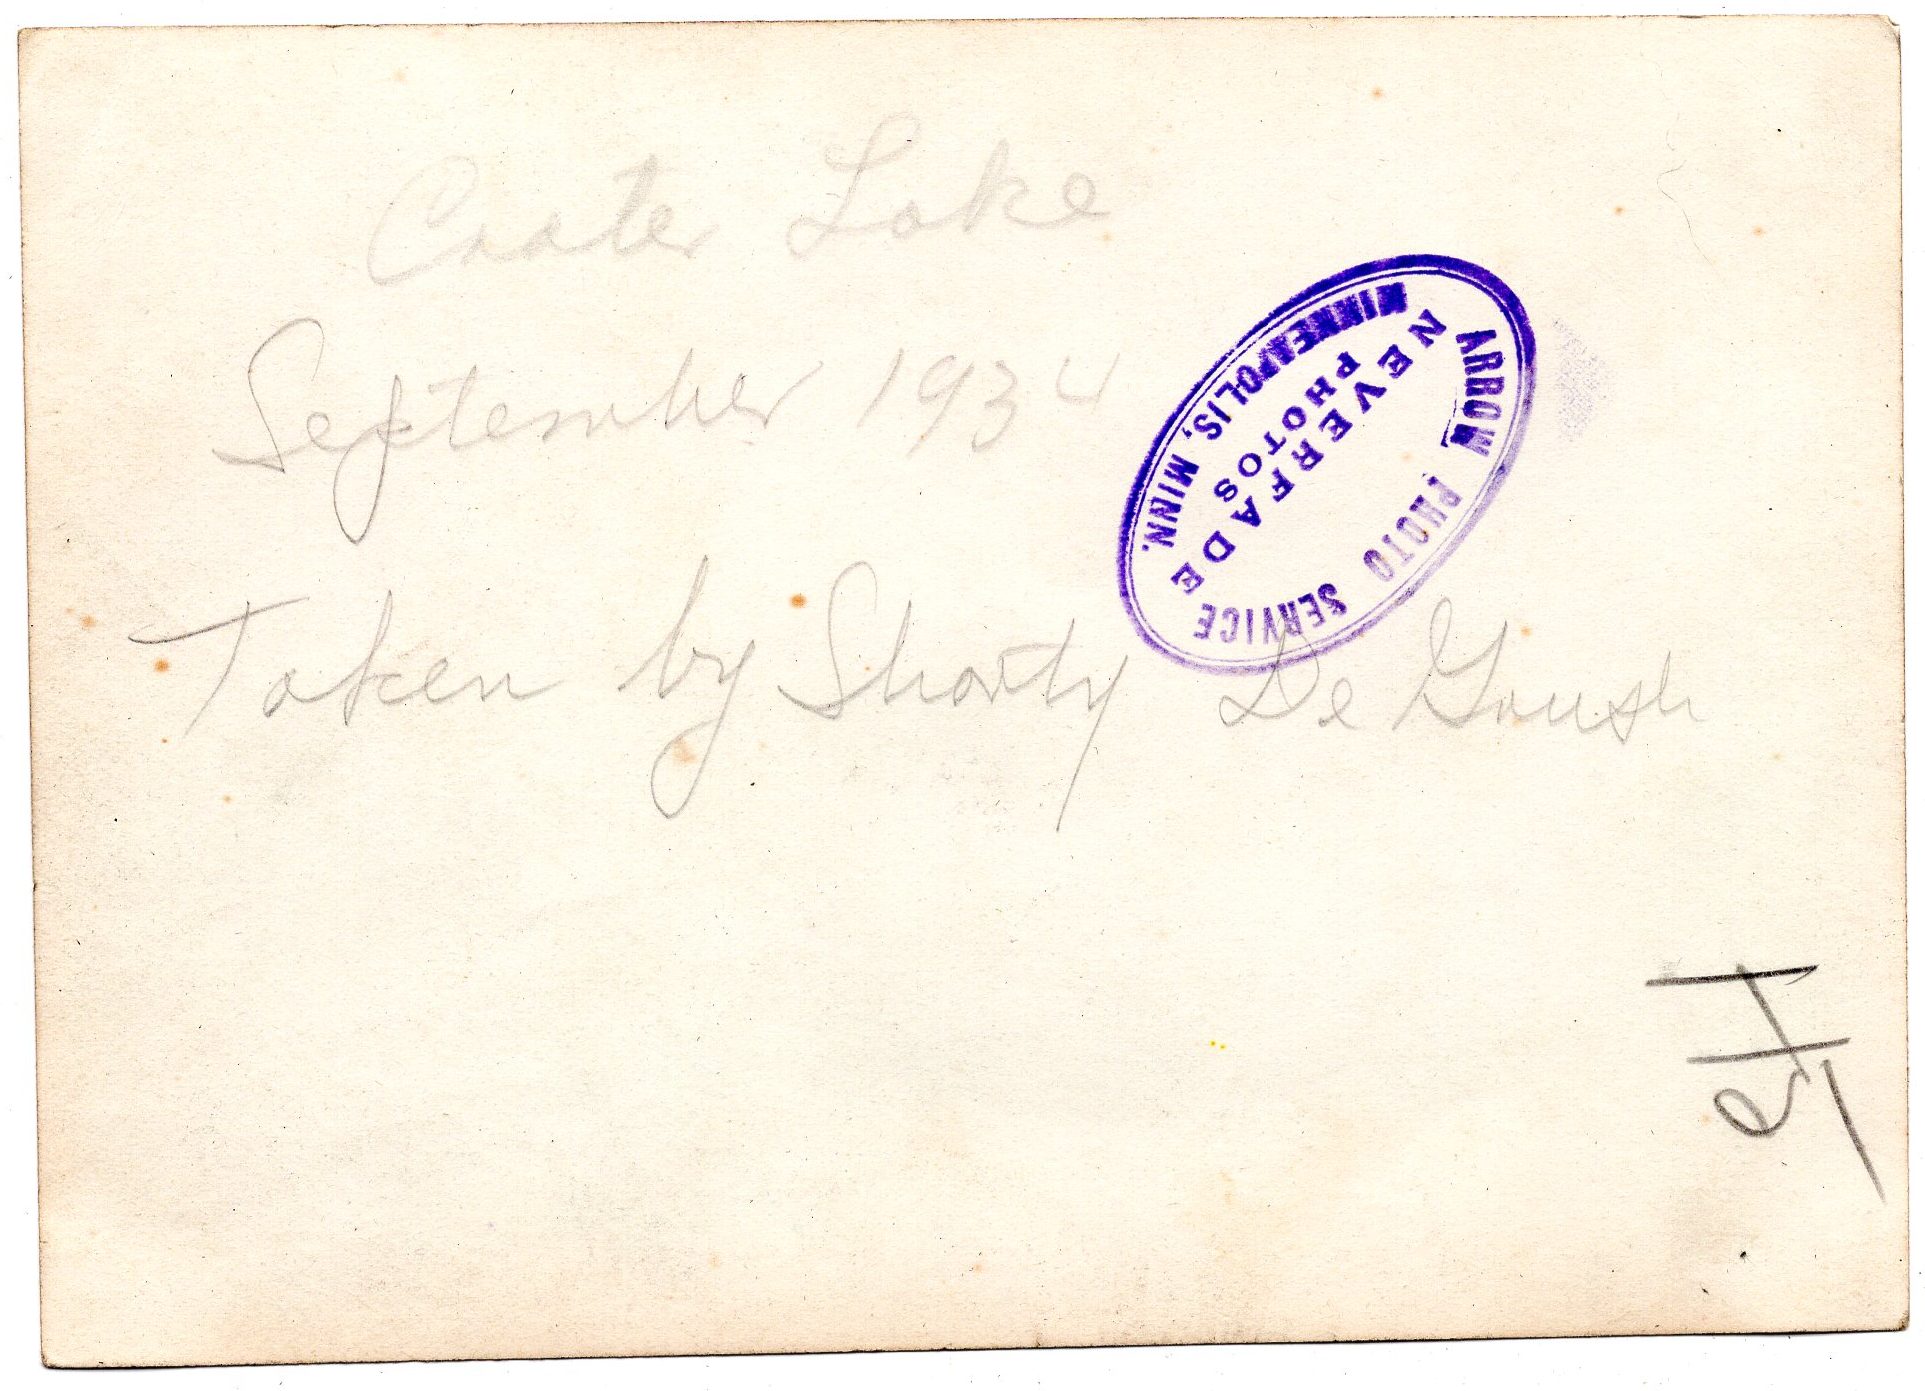 Crater Lake
September 1934
Taken by Shorty De
ARROW PHOTO SERVICE
NEVERFADE
PHOTOS
MINNEAPOLIS, MINN.